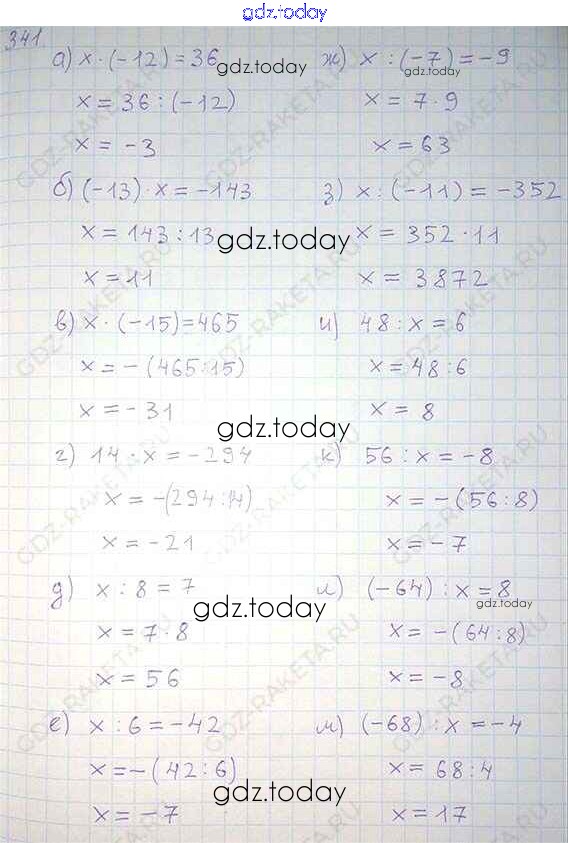 gdz.today
341.
а) x · (-12) = 36
x = 36 : (-12)
x = -3
б) (-13) · x = -143
x = 143 : 13
x = 11
в) x · (-15) = 465
x = - (465:15)
x = -31
г) 14 · x = -294
x = -(294:14)
x = -21
д) x : 8 = 7
x = 7 · 8
x = 56
е) x : 6 = -42
x = -(42:6)
x = -7
ж) x : (-7) = -9
x = 7 · 9
x = 63
з) x : (-11) = -352
x = 352 · 11
x = 3872
и) 48 : x = 6
x = 48 : 6
x = 8
к) 56 : x = -8
x = -(56:8)
x = -7
л) (-64) : x = 8
x = -(64:8)
x = -8
м) (-68) : x = -4
x = 68 : 4
x = 17
gdz.today
gdz.today
gdz.today
gdz.today
gdz.today
gdz.today
GDZ-RAKETA.RU